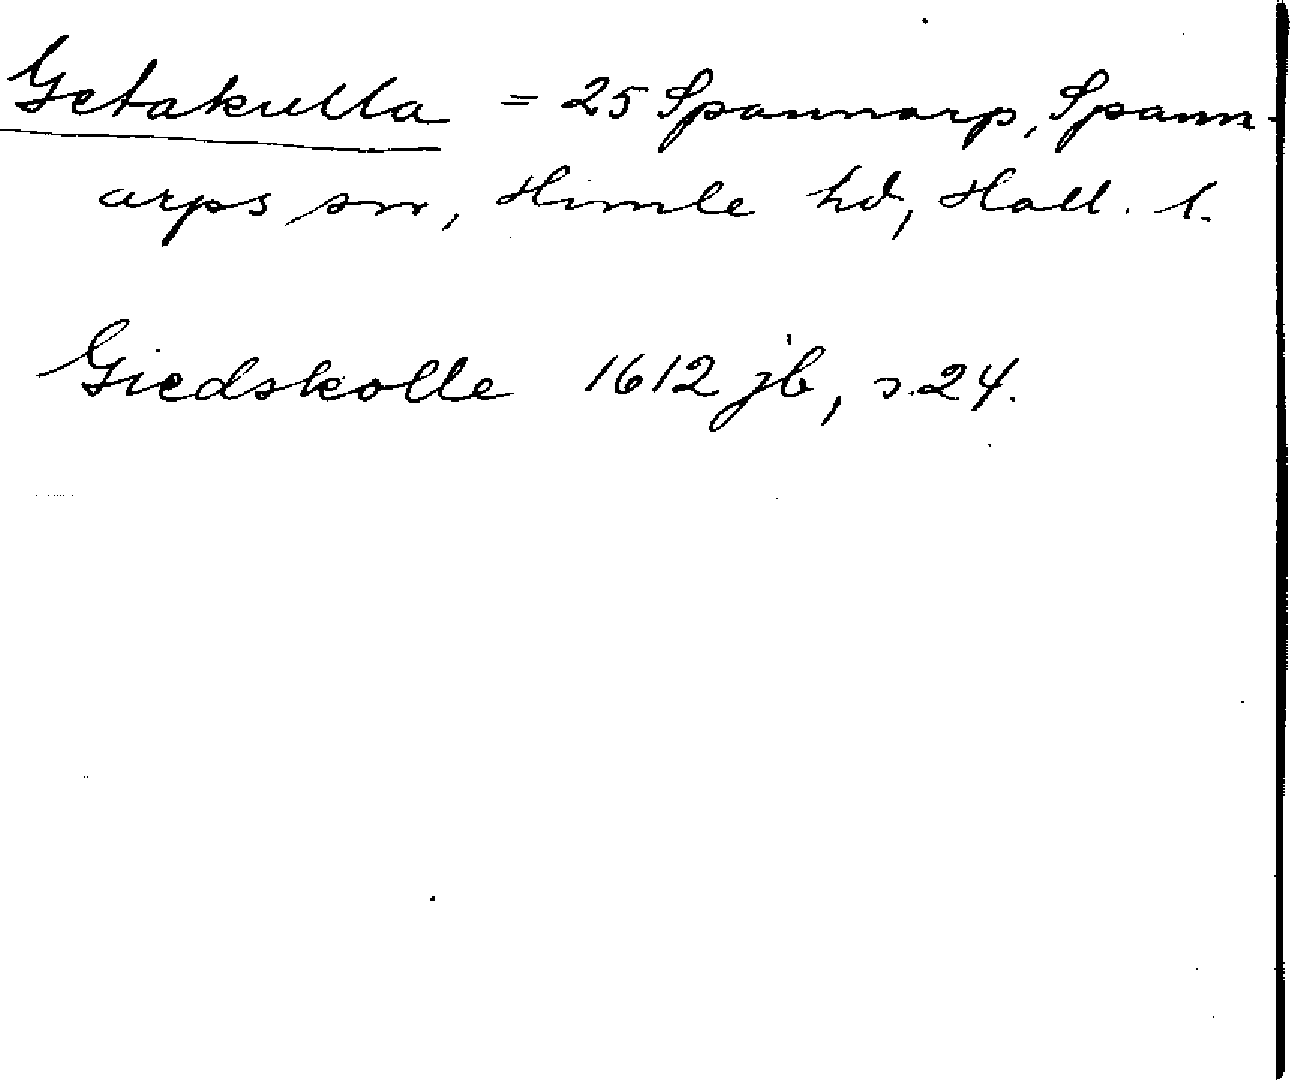 Getakulla = 25 Spannarp, Spann-
arps sn, Himle hd, Hall. l.
Giedskolle 1612 jb, s. 24.